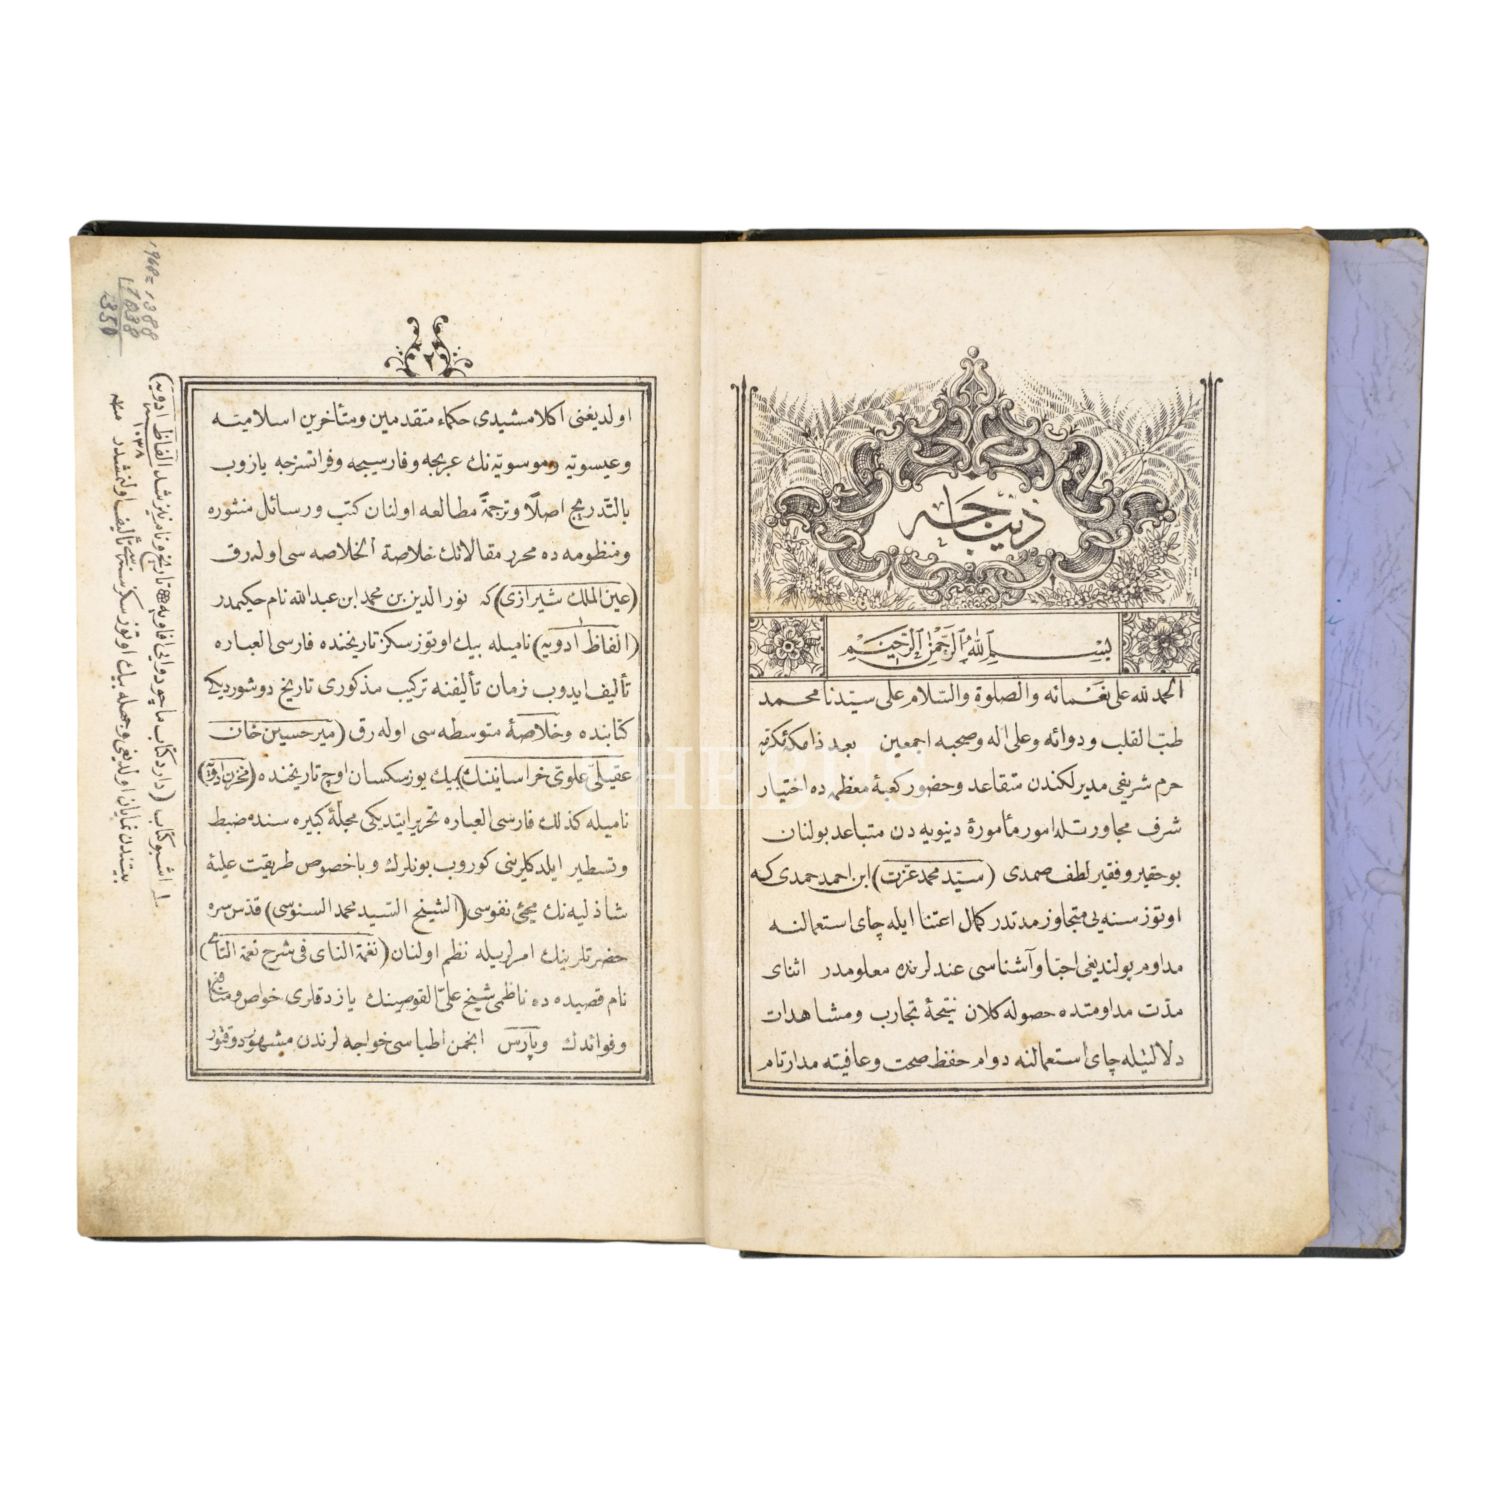 ديباجه
بسم الله الرحمن الرحيم
الحمد لله على نعمائه والصلوة والسلام على سيدنا محمد
طب القلب ودوائه وعلى اله وصحبه اجمعين بعد ذا مكۀ مكرمه
حرم شريفى مديرلكندن متقاعد وحضور كعبۀ معظمه ده اختيار
شرف مجاورتله امور مأمورۀ دنيويه دن متباعد بولنان
بو حقير و فقير لطف صمدى (سيد محمد عزت) ابن احمد حمدى كه
اوتوز سنه يى متجاوز مدتدر كمال اعتنا ايله چاى استعمالنه
مداوم بولنديغى احبا و آشناسى عندلرنده معلومدر اثناى
مدت مداومتده حصوله كلان نتيجۀ تجارب ومشاهدات
دلالتيله چاى استعمالنه دوام حفظ صحت وعافيته مدار تام
٢
اولديغنى اكلامشيدى، حكماء متقدمين ومتأخرين اسلاميه
وعيسويه وموسويه نك عربجه وفارسيجه وفرانسزجه يازوب
بالتدريج اصلاً وترجمةً مطالعه اولنان كتب ورسائل منثوره
ومنظومه ده محرر مقالاتك خلاصة الخلاصه سى اوله رق
(عين الملك شيرازى) كه نور الدين بن محمد ابن عبد الله نام حكيمدر
(الفاظ ادويه) ناميله بيك اوتوز سكز تاريخنده فارسى العباره
تأليف ايدوب زمان تأليفنه تركيب مذكورى تاريخ دوشورديكى
كتابنده وخلاصۀ متوسطه سى اوله رق (مير حسين خان
عقيلى علوى خراسانينك) بيك يوز سكسان اوچ تاريخنده (مخزن ادويه)
ناميله كذلك فارسى العباره تحرير ايتديكى مجلۀ كبيره سنده ضبط
وتسطير ايلدكلرينى كوروب بونلرك وباخصوص طريقت عليۀ
شاذليه نك محيئ نفوسى (الشيخ السيد محمد السنوسى) قدس سره
حضرتلرينك امرلريله نظم اولنان (نغمة الناى فى شرح نعمة الشاى)
نام قصيده ده ناظمى شيخ على القوصينك يازدقلرى خواص ومنافع
وفوائدك وپارس انجمن اطباسى خواجه لرندن مشهور دوقتور
١ اشبو كتاب (دارد كتاب ما چو دوايى افاويه * تاريخ و نام نيز شد الفاظ ادويه)
سنه ١٠٣٨
بيتندن نمايان اولديغى وجهله بيك اوتوز سكز سنه سى تأليف اولنمشدر منه